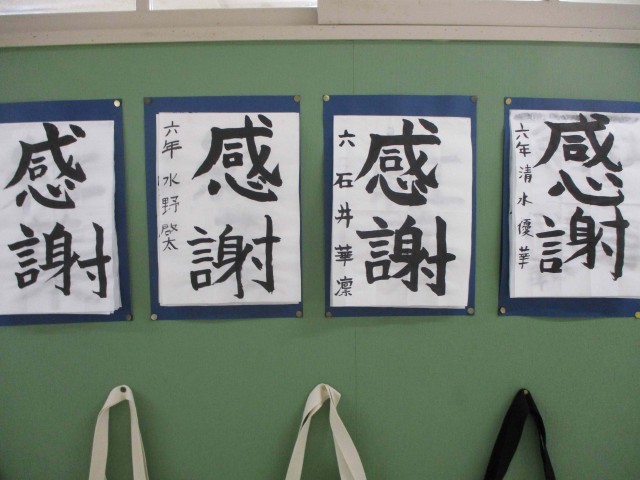 感謝
六年 水野啓太
感謝
六 石井華凛
感謝
六年 清水優華
感謝